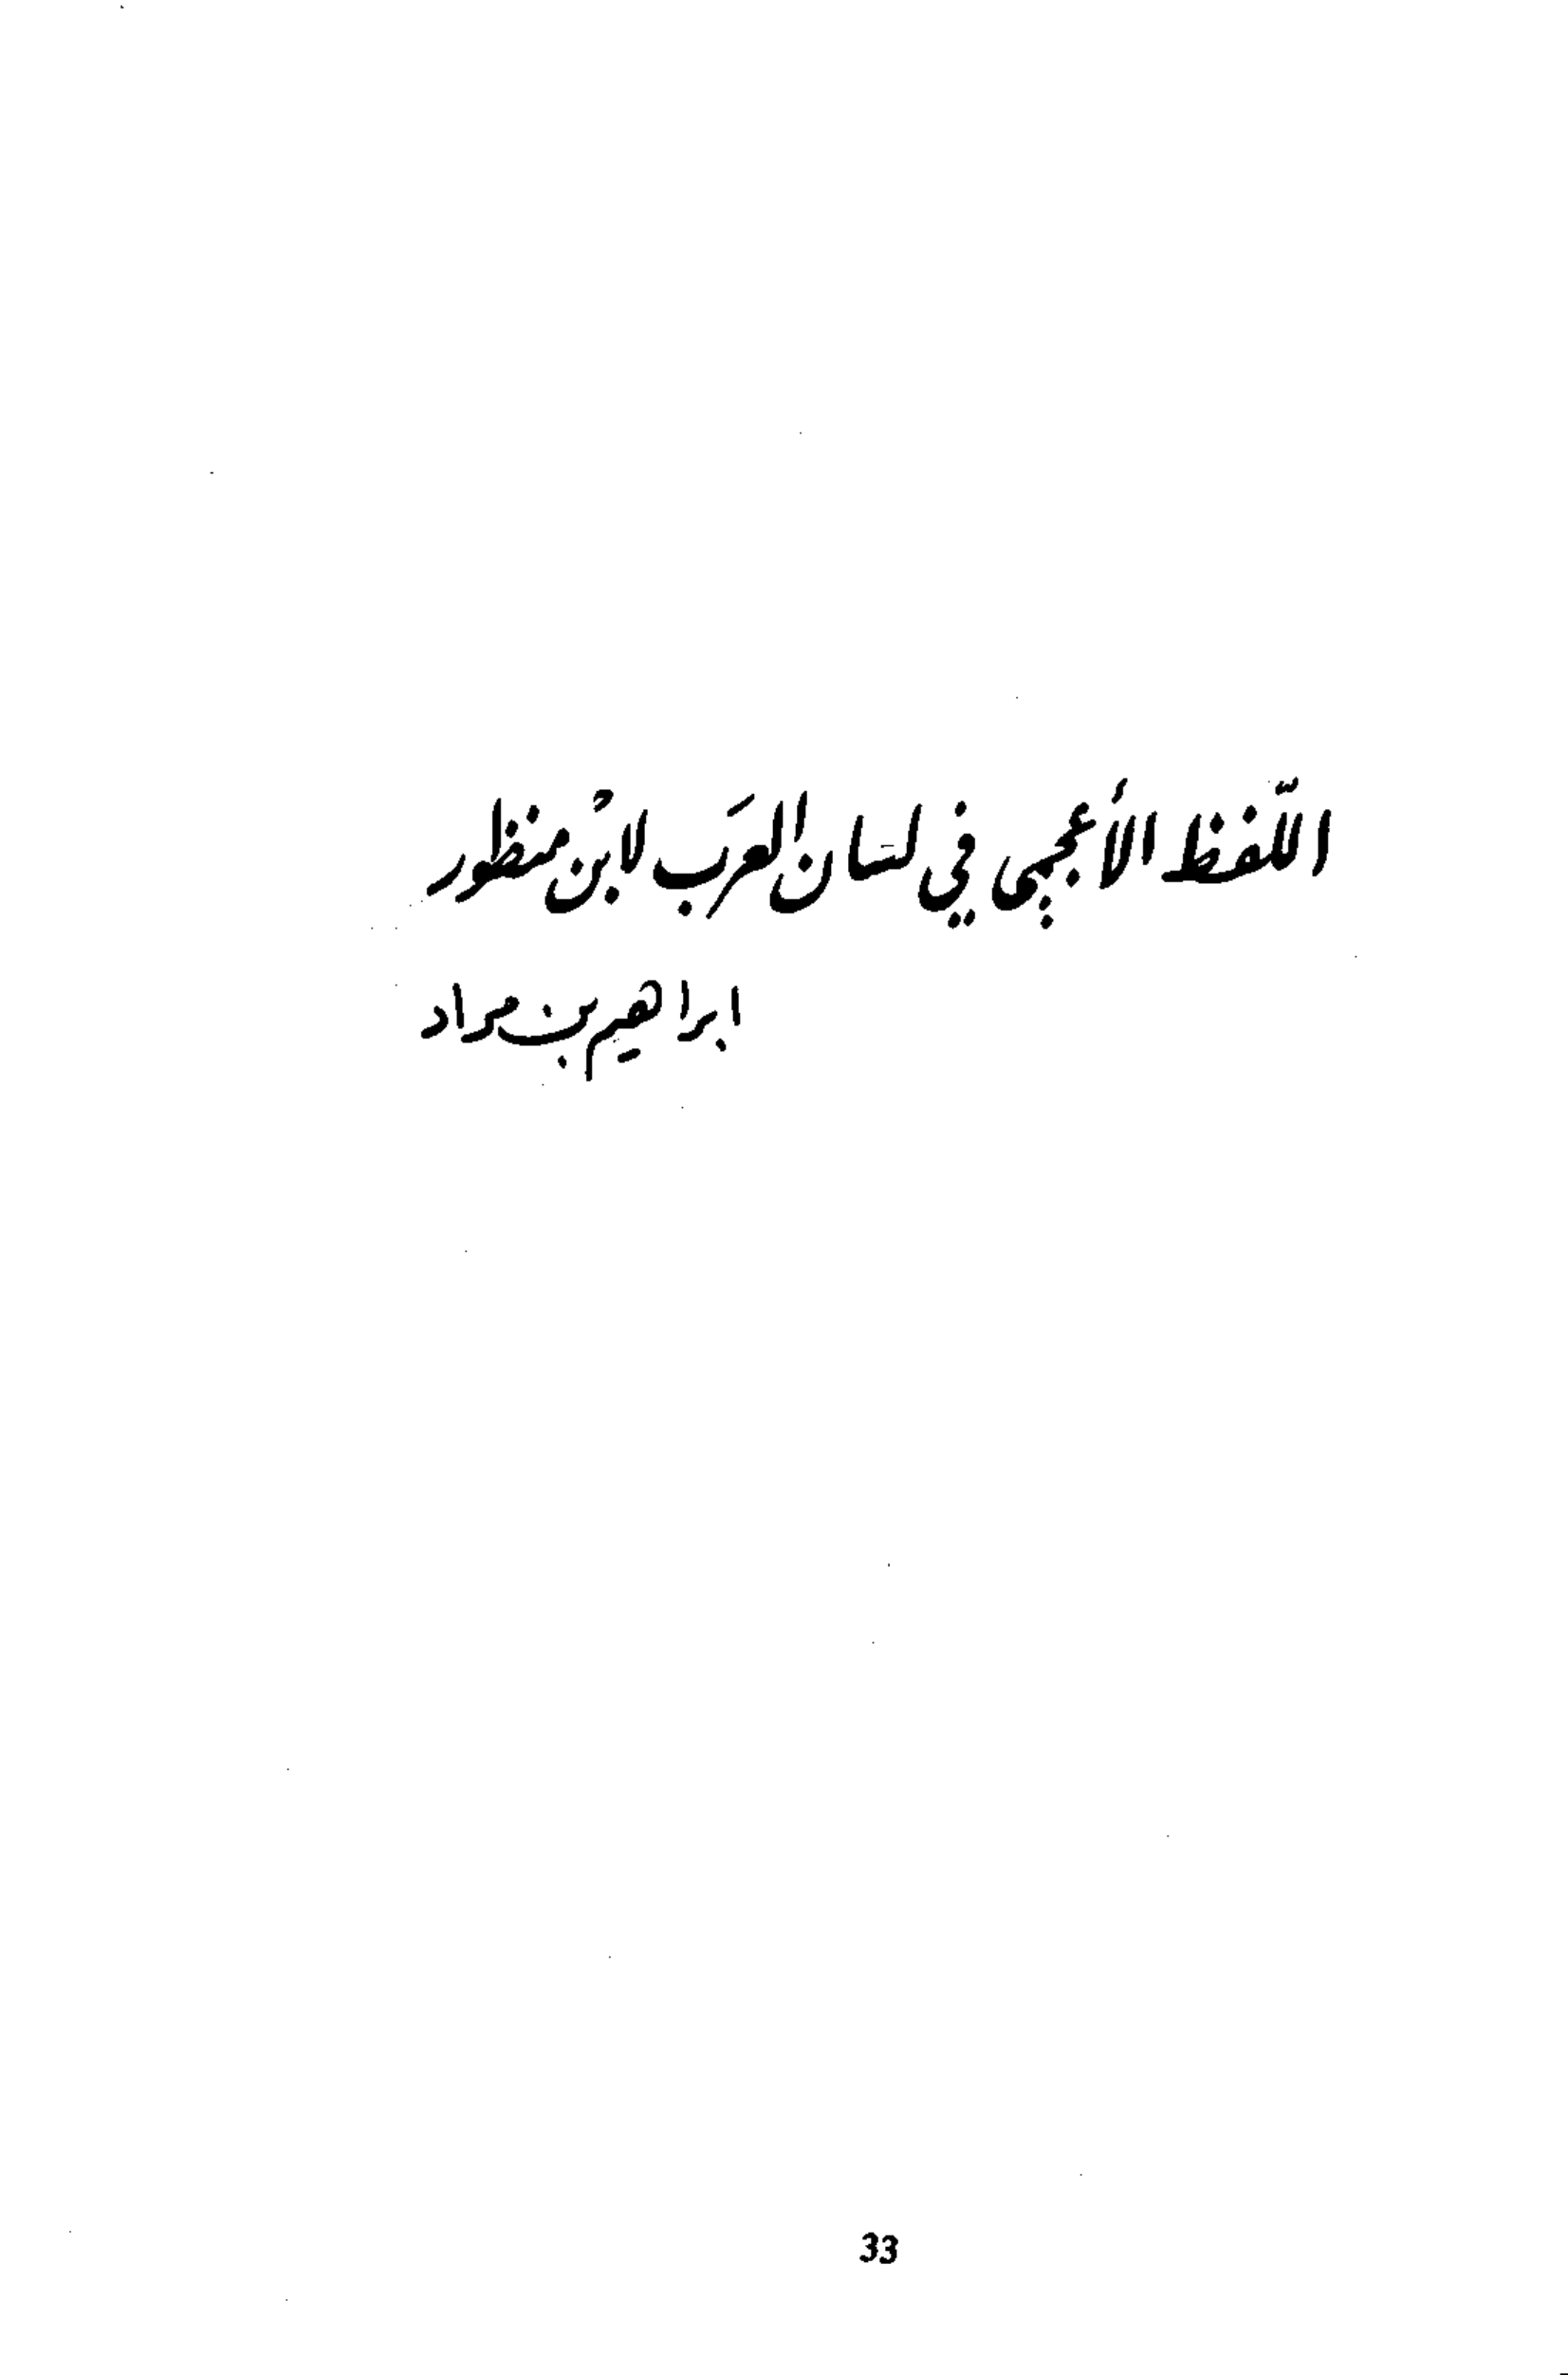 اللّفظ الأعجمي في لسَان العَرَب لابُن منظور
ابراهيم بن مراد
33